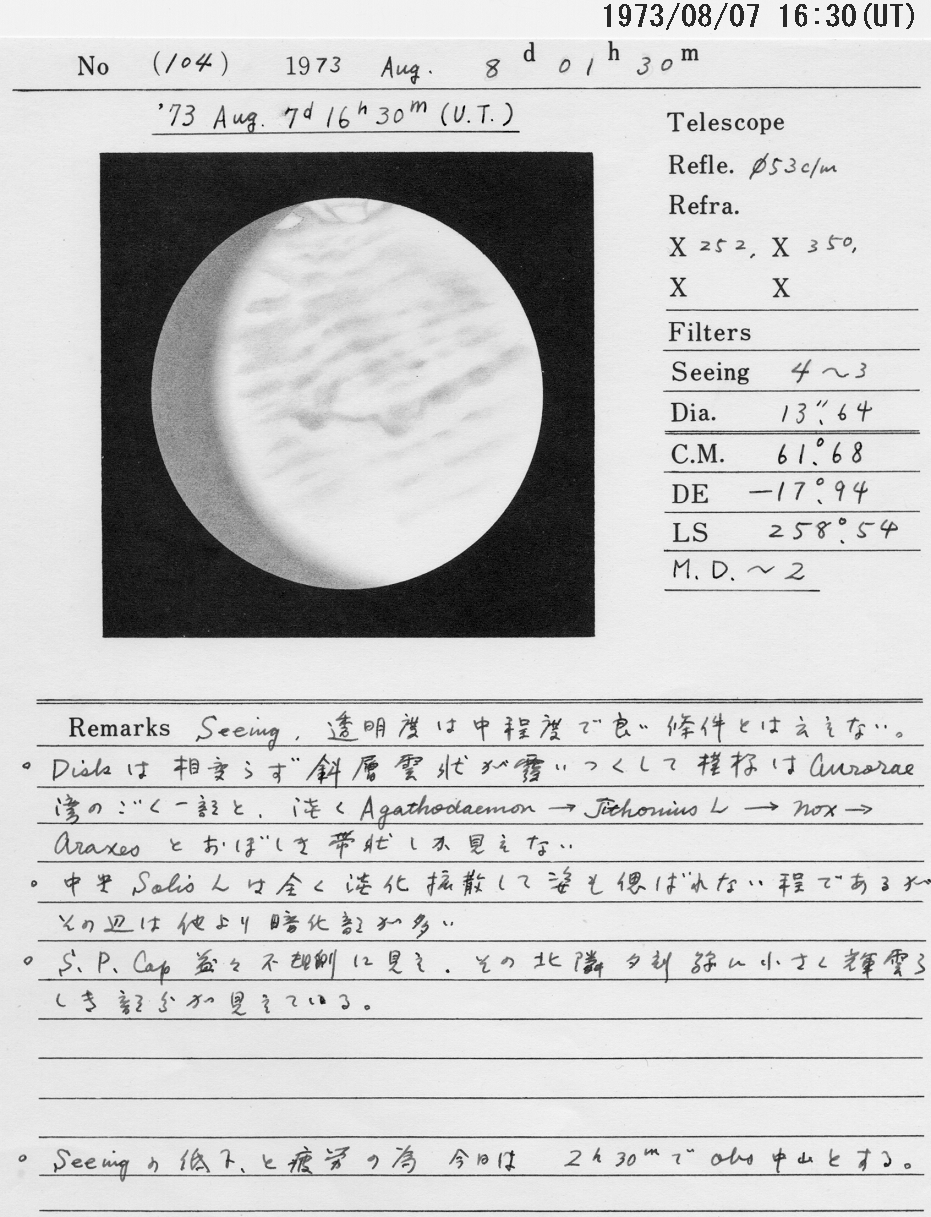 1973/08/07 16:30(UT)
No (104) 1973 Aug. 8 d 01 h 30 m
'73 Aug. 7d 16h 30m (U.T.)
Telescope
Refle. φ53c/m
Refra.
X 252, X 350,
X X
Filters
Seeing 4～3
Dia. 13".64
C.M. 61°.68
DE －17°.94
LS 258°.54
M.D.～2
Remarks Seeing, 透明度は中程度で良い条件とは云えない。
。Diskは相変らず斜層雲状が覆いつくして模様はAurorae
湾のごく一部と、淡くAgathodaemon→Tithonius L→nox→
Araxesとおぼしき帯状しか見えない
。中央Solis Lは全く淡化拡散して姿も偲ばれない程であるが
その辺は他より暗化部が多い
。S.P.Cap益々不規則に見え、その北隣夕刻縁に小さく輝雲ら
しき部分が見えている。
。Seeingの低下、と疲労の為 今日は 2h30mでobs中止とする。